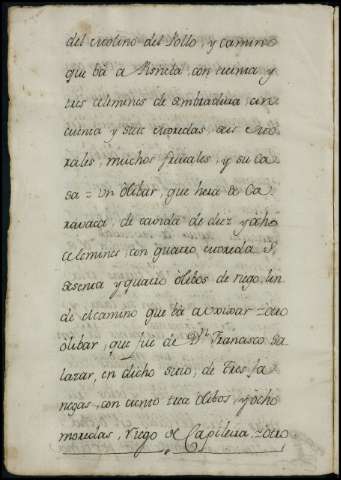 del molino del Pollo, y camino
que bá a Asneta, con treinta y
tres celemines de sembradura cin
cuenta y seis moredas, seis mo
rales, muchos frutales, y su ca
sa = Un olibar, que hera de Ca
ravaca, de cavida de diez y ocho
celemines, con quatro moredas,
sesenta y quatro olibos de riego, lin
de el camino que bá a = otro
olibar, que fue de D.n Francisco Sa
lazar, en dicho sitio, de tres fa
negas, con ciento trece olibos, y ocho
moredas, riego de Capileira = otro